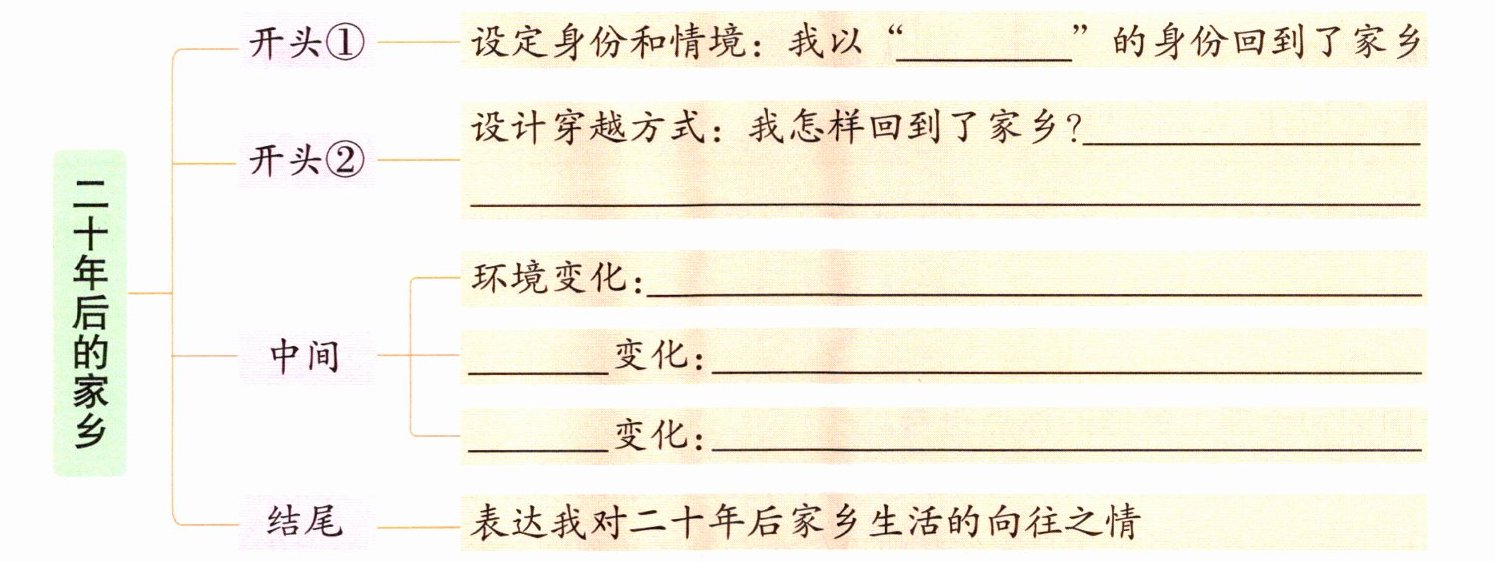 二十年后的家乡
开头① 设定身份和情境：我以“________”的身份回到了家乡
开头② 设计穿越方式：我怎样回到了家乡？________
中间
环境变化：________
________变化：________
________变化：________
结尾 表达我对二十年后家乡生活的向往之情